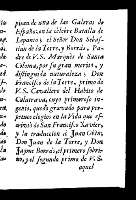 pitan de una de las Galeras de
España, en la célebre Batalla de
Lepanto; el señor Don Sebas-
tian de la Torre, y Borràs, Pa-
dre de V.S. Marquès de Santa
Coloma, por su gran merito, y
distinguida naturaleza; Don
Francisco de la Torre, primo de
V.S. Cavallero del Habito de
Calatrava, cuyo primoroso in-
genio, quedò gravado para per-
petuos elogios en la Vida que es-
criviò de San Francisco Xavier,
y la traduccion de Juan Oven;
Don Juan de la Torre, y Don
Jayme Borràs, el primero sobri-
no, y el segundo primo de V.S.
aquel